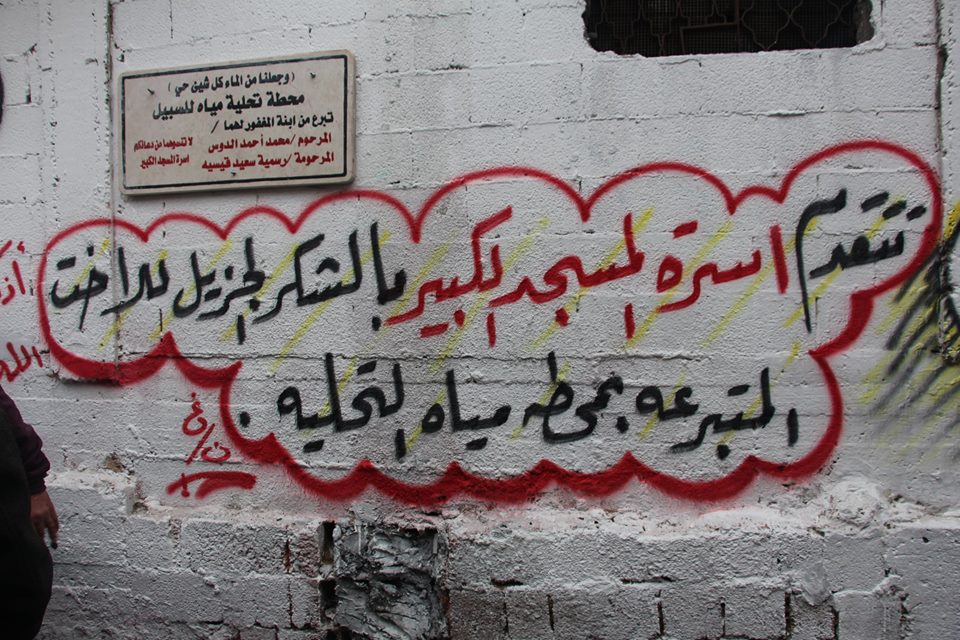 ( وجعلنا من الماء كل شيئ حي )
محطة تحلية مياه للسبيل
تبرع من ابنة المغفور لهما /
المرحوم / محمد أحمد الدوس
المرحومة / رسمية سعيد قيسيه
لا تنسوهما من دعائكم
اسرة المسجد الكبير
تتقدم اسرة المسجد الكبير بالشكر الجزيل للاخت
المتبرعه بمحطه مياه التحليه .